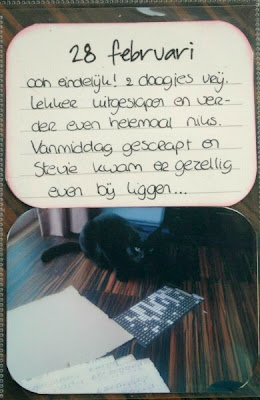 28 februari
ooh eindelijk! 2 daagjes vrij.
Lekker uitgeslapen en ver-
der even helemaal niks.
Vanmiddag gescrapt en
Stevie kwam er gezellig
even bij liggen...